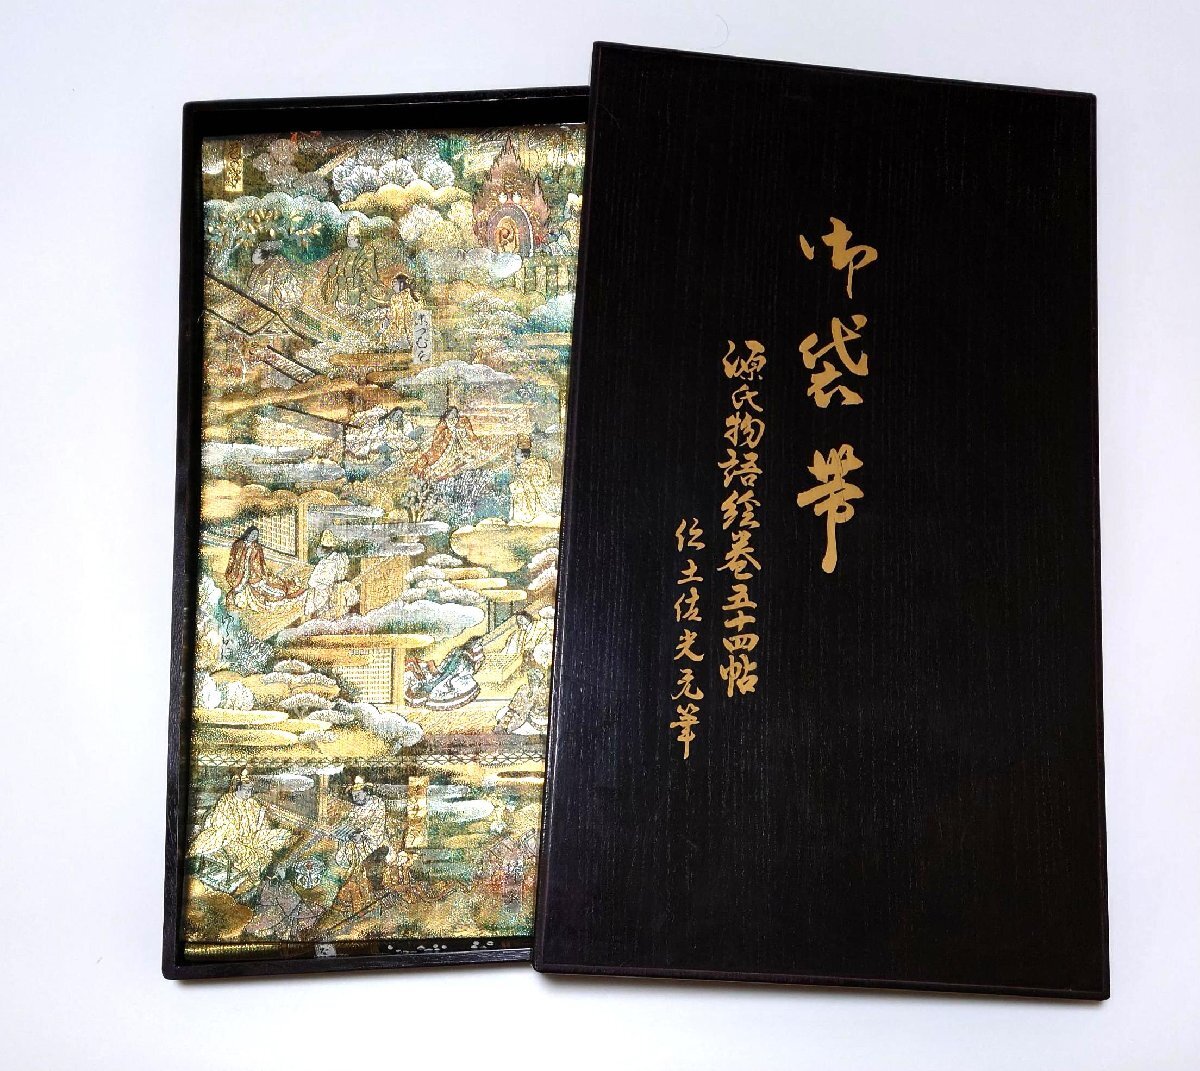 御袋帯
源氏物語絵巻五十四帖
伝土佐光元筆